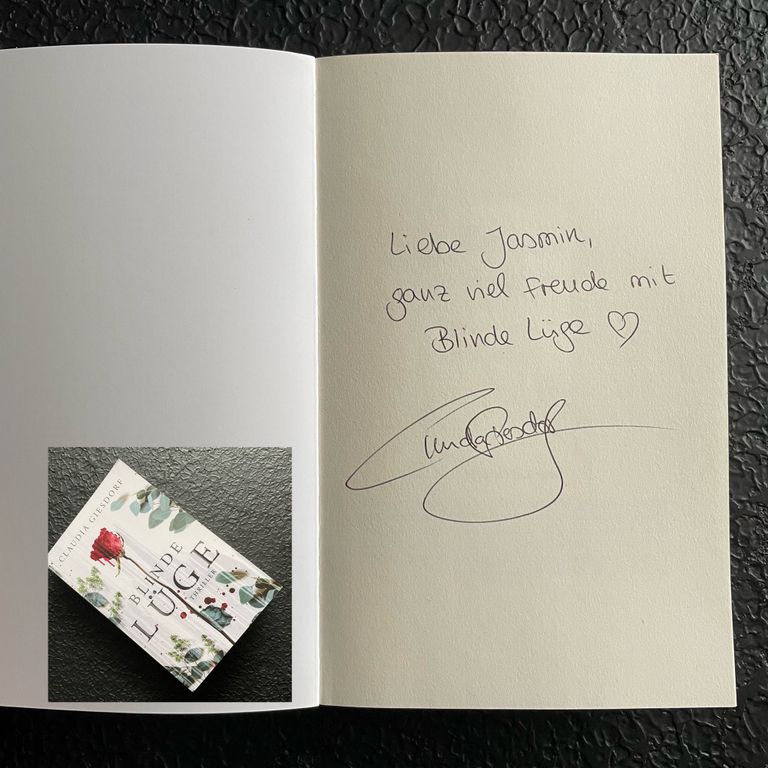 Liebe Jasmin,
ganz viel Freude mit
Blinde Lüge ♡
Claudia Giesdorf
CLAUDIA GIESDORF
BLINDE
LÜGE
THRILLER